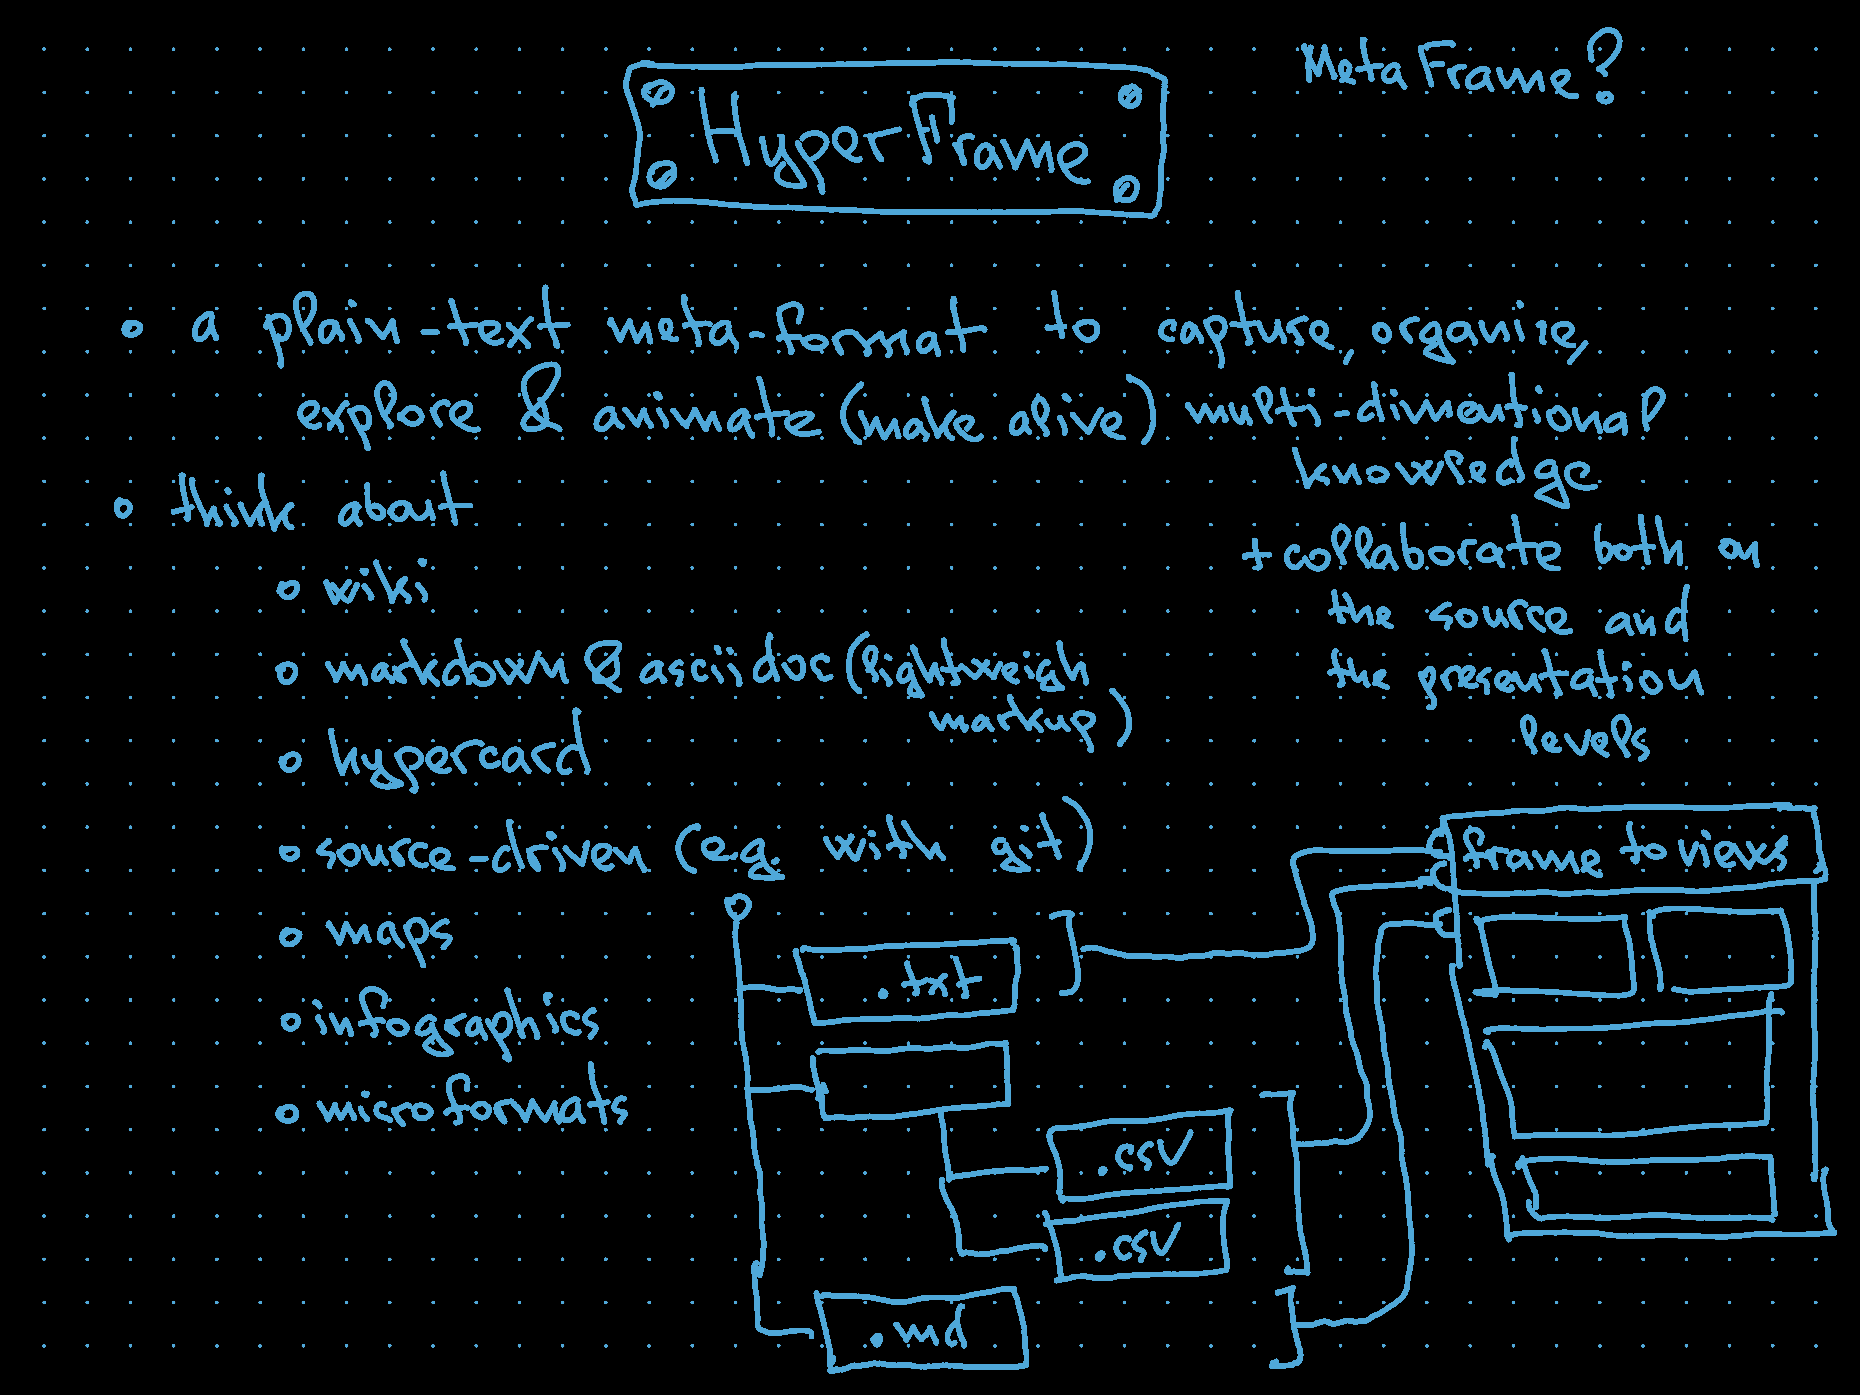 Meta Frame?
HyperFrame
a plain-text meta-format to capture, organize,
explore & animate (make alive) multi-dimentional
knowledge
+ collaborate both on
the source and
the presentation
levels
think about
wiki
markdown & asciidoc (lightweigh
markup)
hypercard
source-driven (e.g. with git)
maps
infographics
microformats
.txt
.csv
.csv
.md
frame to views